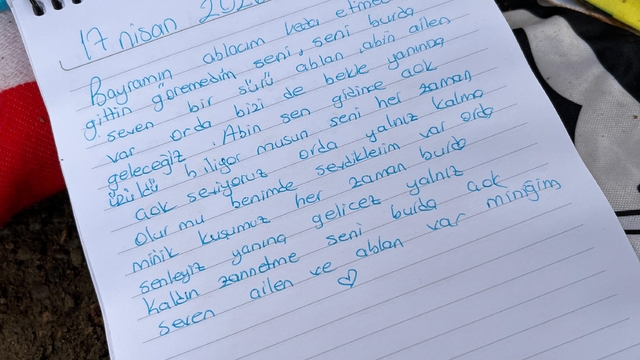 17 nisan 202
Bayramın ablacım veda etmed
gittin göremedim seni, seni burda
seven bir sürü ablan abin ailen
var orda bizi de bekle yanında
geleceğiz. Abin sen gidince çok
üzüldü biliyor musun seni her zaman
çok seviyoruz orda yalnız kalma
olur mu benimde sevdiklerim var orda
minik kuşumuz her zaman burda
senleyiz yanına gelicez yalnız
kaldın zannetme seni burda çok
seven ailen ve ablan var miniğim